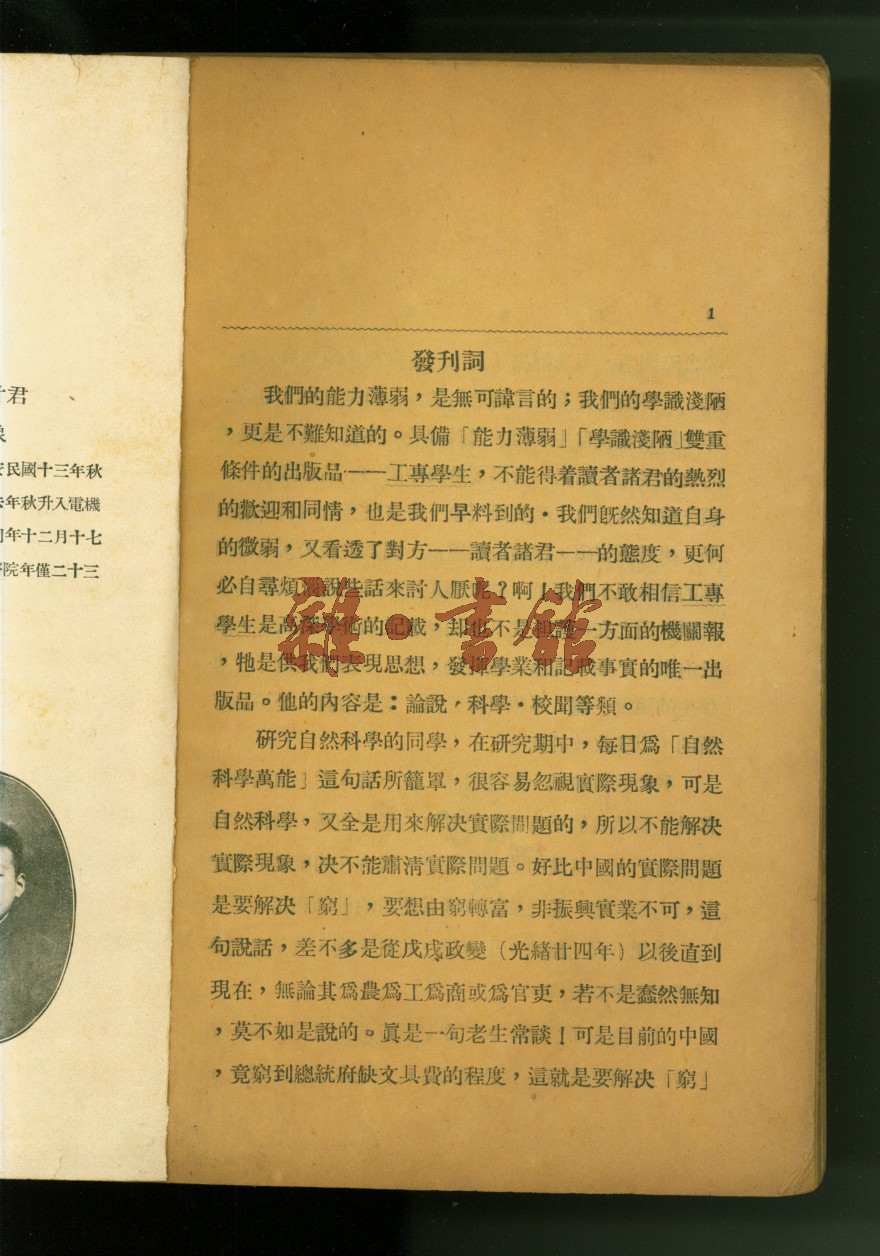 君
民國十三年秋
年秋升入電機
年十二月十七
院年僅二十三
1
發刊詞
我們的能力薄弱，是無可諱言的；我們的學識淺陋
，更是不難知道的。具備「能力薄弱」「學識淺陋」雙重
條件的出版品——工專學生，不能得着讀者諸君的熱烈
的歡迎和同情，也是我們早料到的・我們既然知道自身
的微弱，又看透了對方——讀者諸君——的態度，更何
必自尋煩惱說些話來討人厭呢？啊！我們不敢相信工專
學生是高深學術的記載，却也不是糾護一方面的機關報
，牠是供我們表現思想，發揮學業和記載事實的唯一出
版品。牠的內容是：論說，科學・校聞等類。
研究自然科學的同學，在研究期中，每日爲「自然
科學萬能」這句話所籠罩，很容易忽視實際現象，可是
自然科學，又全是用來解決實際問題的，所以不能解决
實際現象，决不能肅清實際問題。好比中國的實際問題
是要解决「窮」，要想由窮轉富，非振興實業不可，這
句說話，差不多是從戊戌政變（光緒廿四年）以後直到
現在，無論其爲農爲工爲商或爲官吏，若不是蠢然無知
，莫不如是說的。眞是一句老生常談！可是目前的中國
，竟窮到總統府缺文具費的程度，這就是要解决「窮」
雜・書館